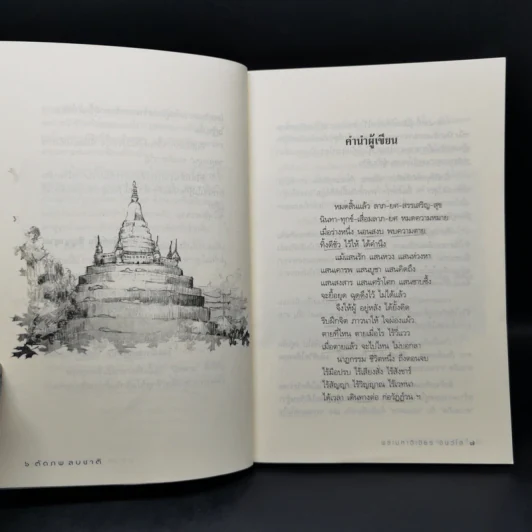 ๖ ตัดภพ ลบชาติ
คำนำผู้เขียน
หมดสิ้นแล้ว ลาภ-ยศ-สรรเสริญ-สุข
นินทา-ทุกข์-เสื่อมลาภ-ยศ หมดความหมาย
เมื่อร่างหนึ่ง นอนสงบ พบความตาย
ทิ้งดีชั่ว ไว้ให้ ได้คำนึง
แม้แสนรัก แสนหวง แสนห่วงหา
แสนเคารพ แสนบูชา แสนคิดถึง
แสนสงสาร แสนเศร้าโศก แสนซาบซึ้ง
จะยื้อยุด ฉุดดึงไว้ ไม่ได้แล้ว
จึงให้ผู้ อยู่หลัง ได้ยั้งคิด
รีบฝึกจิต ภาวนาให้ ใจผ่องแผ้ว
ตายที่ไหน ตายเมื่อไร ไร้วี่แวว
เมื่อตายแล้ว จะไปไหน ไม่บอกลา
นาฏกรรม ชีวิตหนึ่ง ถึงตอนจบ
ไร้สัญญา ไร้วิญญาณ ไร้เวทนา
ได้เวลา เดินทางต่อ ก่อวัฏฏ์วน ฯ
๗